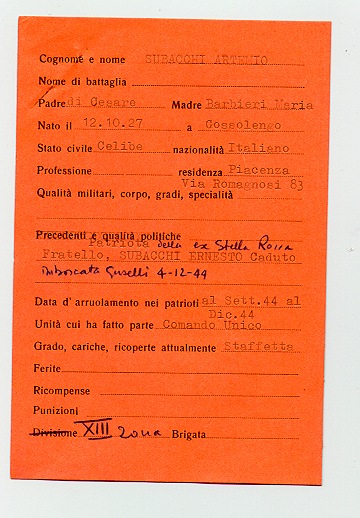 Cognome e nome SUBACCHI ARTEMIO
Nome di battaglia
Padre di Cesare Madre Barbieri Maria
Nato il 12.10.27 a Gossolengo
Stato civile Celibe nazionalità Italiano
Professione residenza Piacenza
Via Romagnosi 83
Qualità militari, corpo, gradi, specialità
Precedenti e qualità politiche
Patriota della ex Stella Rossa
Fratello, SUBACCHI ERNESTO Caduto
Imboscata Guselli 4-12-44
Data d'arruolamento nei patrioti al Sett.44 al
Dic.44
Unità cui ha fatto parte Comando Unico
Grado, cariche, ricoperte attualmente Staffetta
Ferite
Ricompense
Punizioni
Divisione XIII Zona Brigata